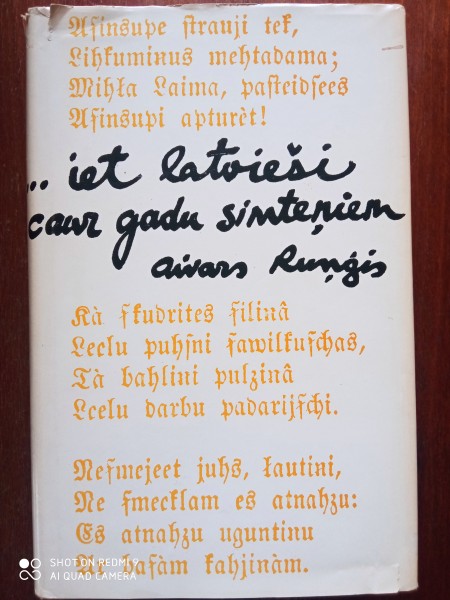 Aſinsupe ſtrauji tek,
Lihkuminus mehtadama;
Mihła Laima, paſteidſees
Aſinsupi apturèt!
... iet latvieši
caur gadu simteņiem
aivars Ruņģis
Kà ſkudrites ſilinâ
Leelu puhſni ſawilkuſchas,
Tà bahlini pulzinâ
Leelu darbu padarijſchi.
Neſmejeet juhs, łautini,
Ne ſmeeklam es atnahzu:
Es atnahzu uguntinu
baſàm kahjinàm.
SHOT ON REDMI 9
AI QUAD CAMERA